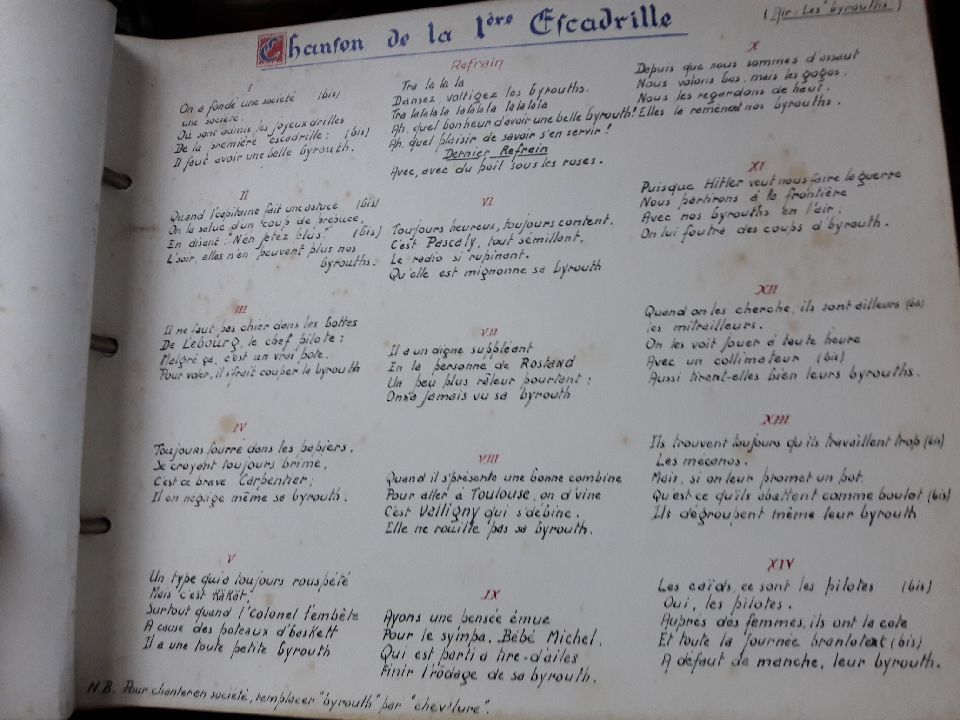 Chanson de la 1ère Escadrille
(Air: Les byrouths)
I
On a fondé une société (bis)
une société.
Où sont admis les joyeux drilles
De la première escadrille; (bis)
Il faut avoir une belle byrouth.
II
Quand l'capitaine fait une astuce (bis)
On la salue d'un coup de prépuce,
En disant: "N'en jetez plus" (bis)
L'soir, elles n'en peuvent plus nos
byrouths.
III
Il ne faut pas chier dans les bottes
De Lebourg, le chef pilote;
Malgré ça, c'est un vrai pote.
Pour voler, il s'frait couper la byrouth
IV
Toujours fourré dans les papiers,
Se croyant toujours brimé,
C'est ce brave Carpentier;
Il en néglige même sa byrouth.
V
Un type qui a toujours rouspété
Mais c'est Kàkàt,
Surtout quand l'colonel l'embête
A cause des poteaux d'baskett
Il a une toute petite byrouth
Refrain
Tra la la la
Dansez, voltigez les byrouths.
Tra la la la la la la la la la la la
Ah, quel bonheur d'avoir une belle byrouth!
Ah, quel plaisir de savoir s'en servir!
Dernier Refrain
Avec, avec du poil sous les roses.
VI
Toujours heureux, toujours content.
C'est Pascaly, tout sémillant.
Le radio si rupinant.
Qu'elle est mignonne sa byrouth
VII
Il a un digne suppléant
En la personne de Rostand
Un peu plus râleur pourtant;
On n'a jamais vu sa byrouth
VIII
Quand il s'présente une bonne combine
Pour aller à Toulouse, on d'vine
C'est Valligny qui s'débine.
Elle ne rouille pas sa byrouth.
IX
Ayons une pensée émue
Pour le sympa, Bébé Michel.
Qui est parti à tire-d'ailes
Finir l'rôdage de sa byrouth.
X
Depuis que nous sommes d'assaut
Nous volons bas, mais les gogos.
Nous les regardons de haut.
Elles la ramènent nos byrouths.
XI
Puisque Hitler veut nous faire la guerre
Nous partirons à la frontière
Avec nos byrouths en l'air;
On lui foutra des coups d'byrouth.
XII
Quand on les cherche, ils sont ailleurs (bis)
les mitrailleurs.
On les voit jouer à toute heure
Avec un collimateur (bis)
Aussi tirent-elles bien leurs byrouths.
XIII
Ils trouvent toujours qu'ils travaillent trop (bis)
Les mécanos.
Mais, si on leur promet un pot,
Qu'est ce qu'ils abattent comme boulot (bis)
Ils dégroupent même leur byrouth
XIV
Les caïds, ce sont les pilotes (bis)
Oui, les pilotes.
Auprès des femmes, ils ont la cote
Et toute la journée branlotent (bis)
A défaut de manche, leur byrouth.
N.B. Pour chanter en société, remplacer "byrouth" par "chev'lure".